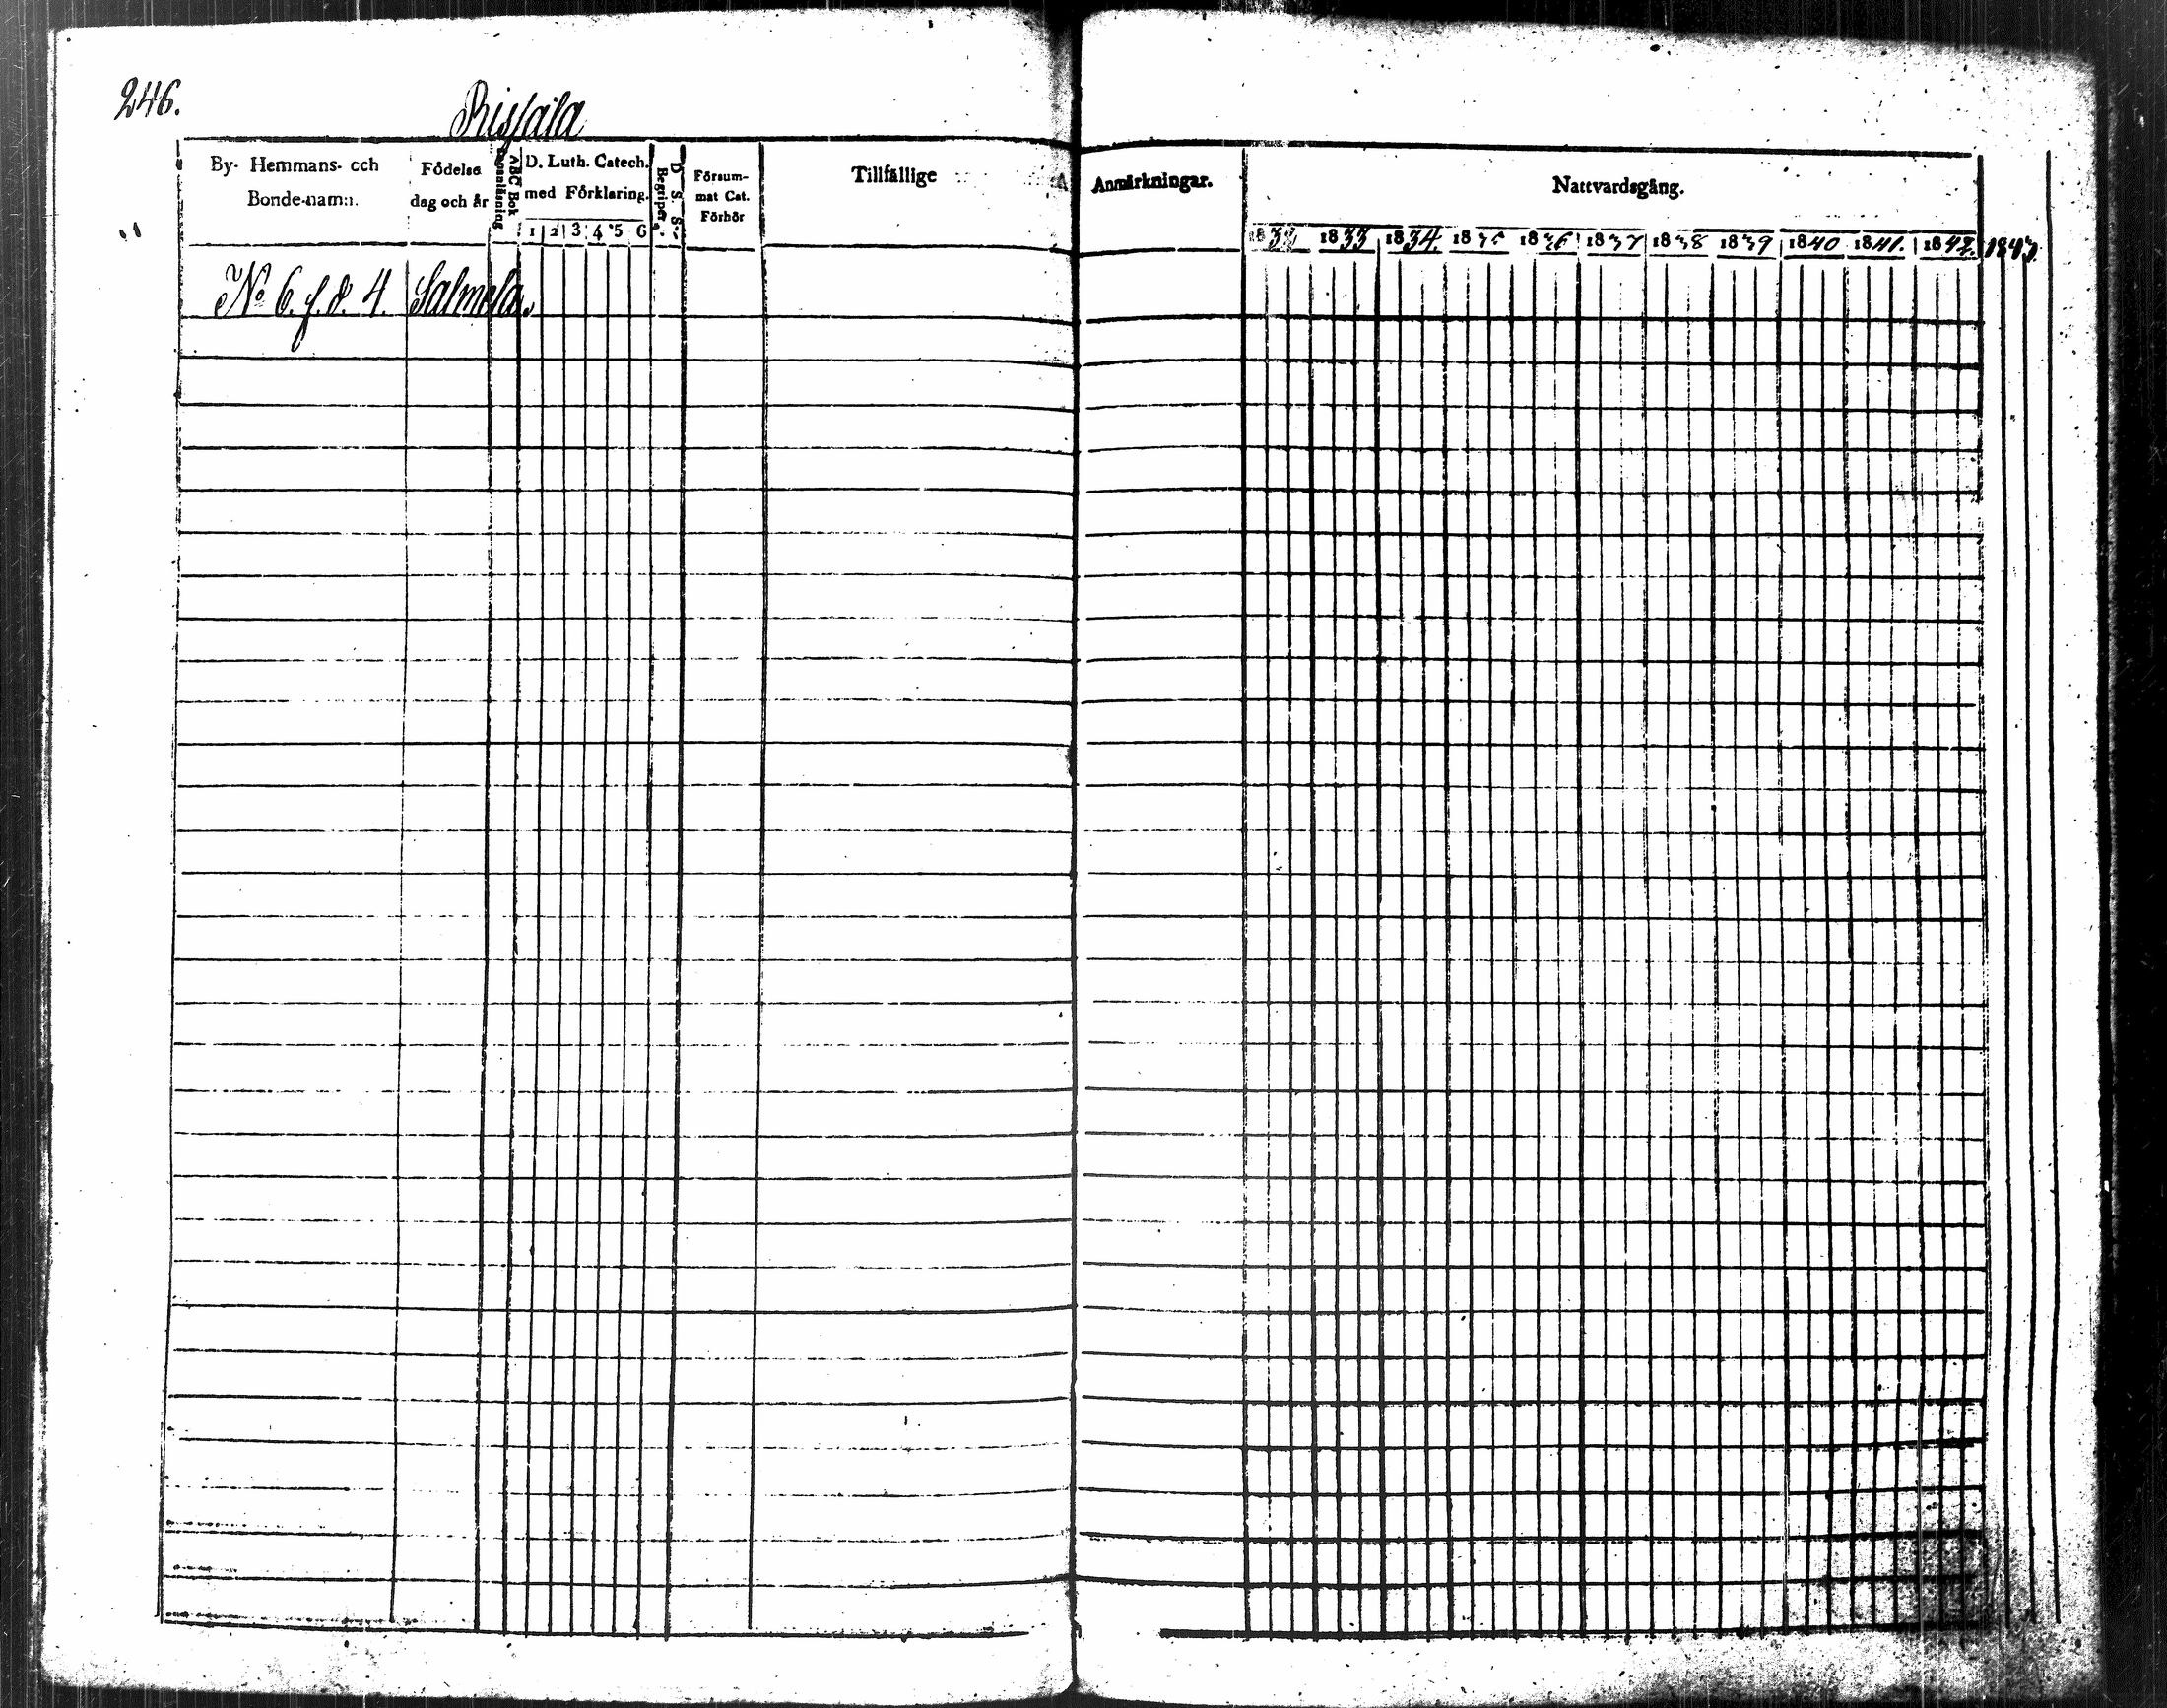 246.
Rissala
By- Hemmans- och Bonde-namn.
Födelse dag och år
ABC Bok
D. Luth. Catech. med Förklaring.
1 2 3 4 5 6
Begriper
D. S. S.
Försum-
mat Cat.
Förhör
Tillfällige Anmärkningar.
Nattvardsgång.
1832 1833 1834. 1835 1836 1837 1838 1839 1840 1841. 1842. 1843.
No 6. f. d. 4. Salmela.